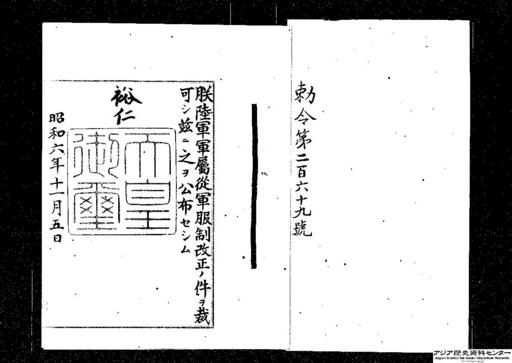 勅令第二百六十九號
朕陸軍軍屬從軍服制改正ノ件ヲ裁
可シ茲ニ之ヲ公布セシム
裕仁
天皇
御璽
昭和六年十一月五日
アジア歴史資料センター
Japan Center for Asian Historical Records